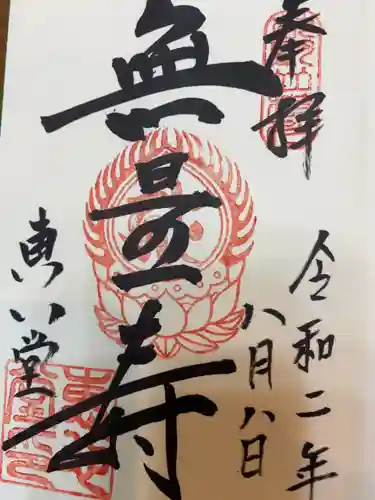 奉拝
令和二年
八月八日
無量寿
恵い堂